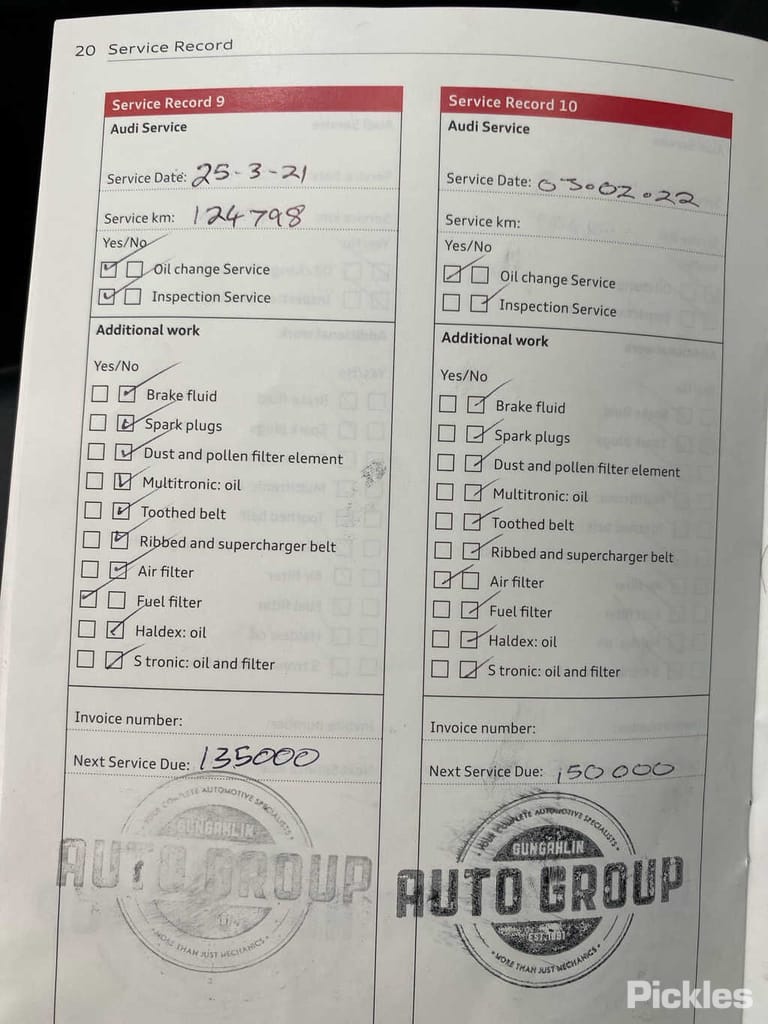 20 Service Record
Service Record 9
Audi Service
Service Date: 25-3-21
Service km: 124798
Yes/No
Oil change Service
Inspection Service
Additional work
Yes/No
Brake fluid
Spark plugs
Dust and pollen filter element
Multitronic: oil
Toothed belt
Ribbed and supercharger belt
Air filter
Fuel filter
Haldex: oil
S tronic: oil and filter
Invoice number:
Next Service Due: 135000
YOUR COMPLETE AUTOMOTIVE SPECIALISTS
GUNGAHLIN
AUTO GROUP
• MORE THAN JUST MECHANICS •
Service Record 10
Audi Service
Service Date: 03.02.22
Service km:
Yes/No
Oil change Service
Inspection Service
Additional work
Yes/No
Brake fluid
Spark plugs
Dust and pollen filter element
Multitronic: oil
Toothed belt
Ribbed and supercharger belt
Air filter
Fuel filter
Haldex: oil
S tronic: oil and filter
Invoice number:
Next Service Due: 150 000
• YOUR COMPLETE AUTOMOTIVE SPECIALISTS •
GUNGAHLIN
AUTO GROUP
EST.1991
• MORE THAN JUST MECHANICS •
Pickles